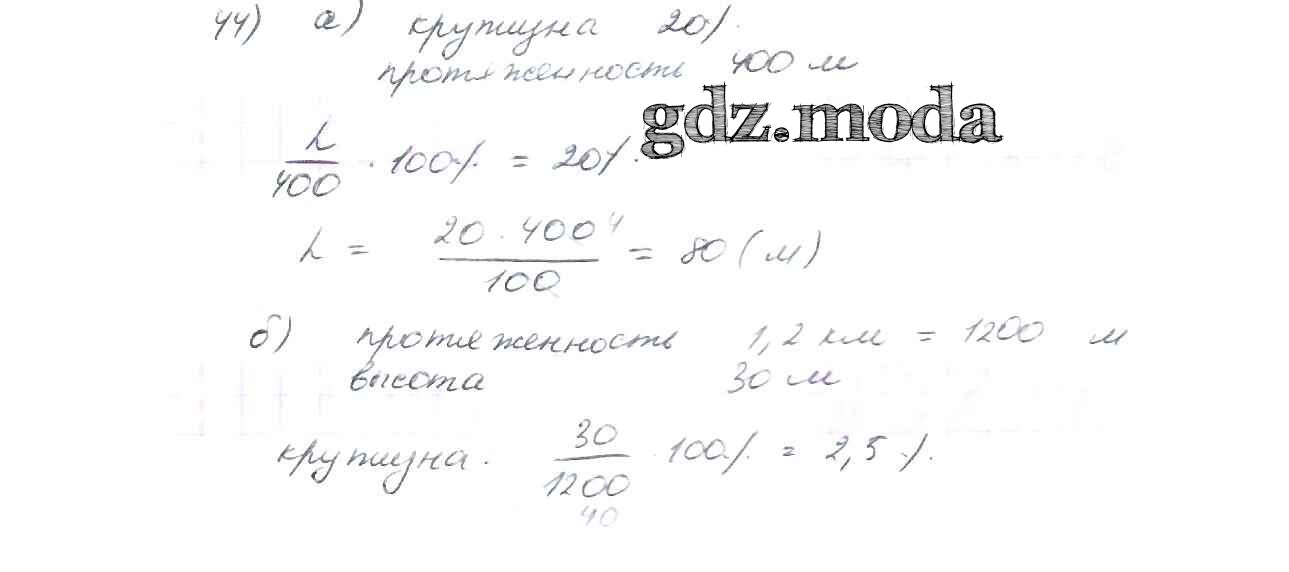 44) а) крутизна 20%.
протяженность 400 м
gdz.moda
h/400 · 100% = 20%.
h = 20 · 400 4/100 = 80 (м)
б) протяженность 1,2 км = 1200 м
высота 30 м
крутизна. 30/1200 · 100% = 2,5 %.
40